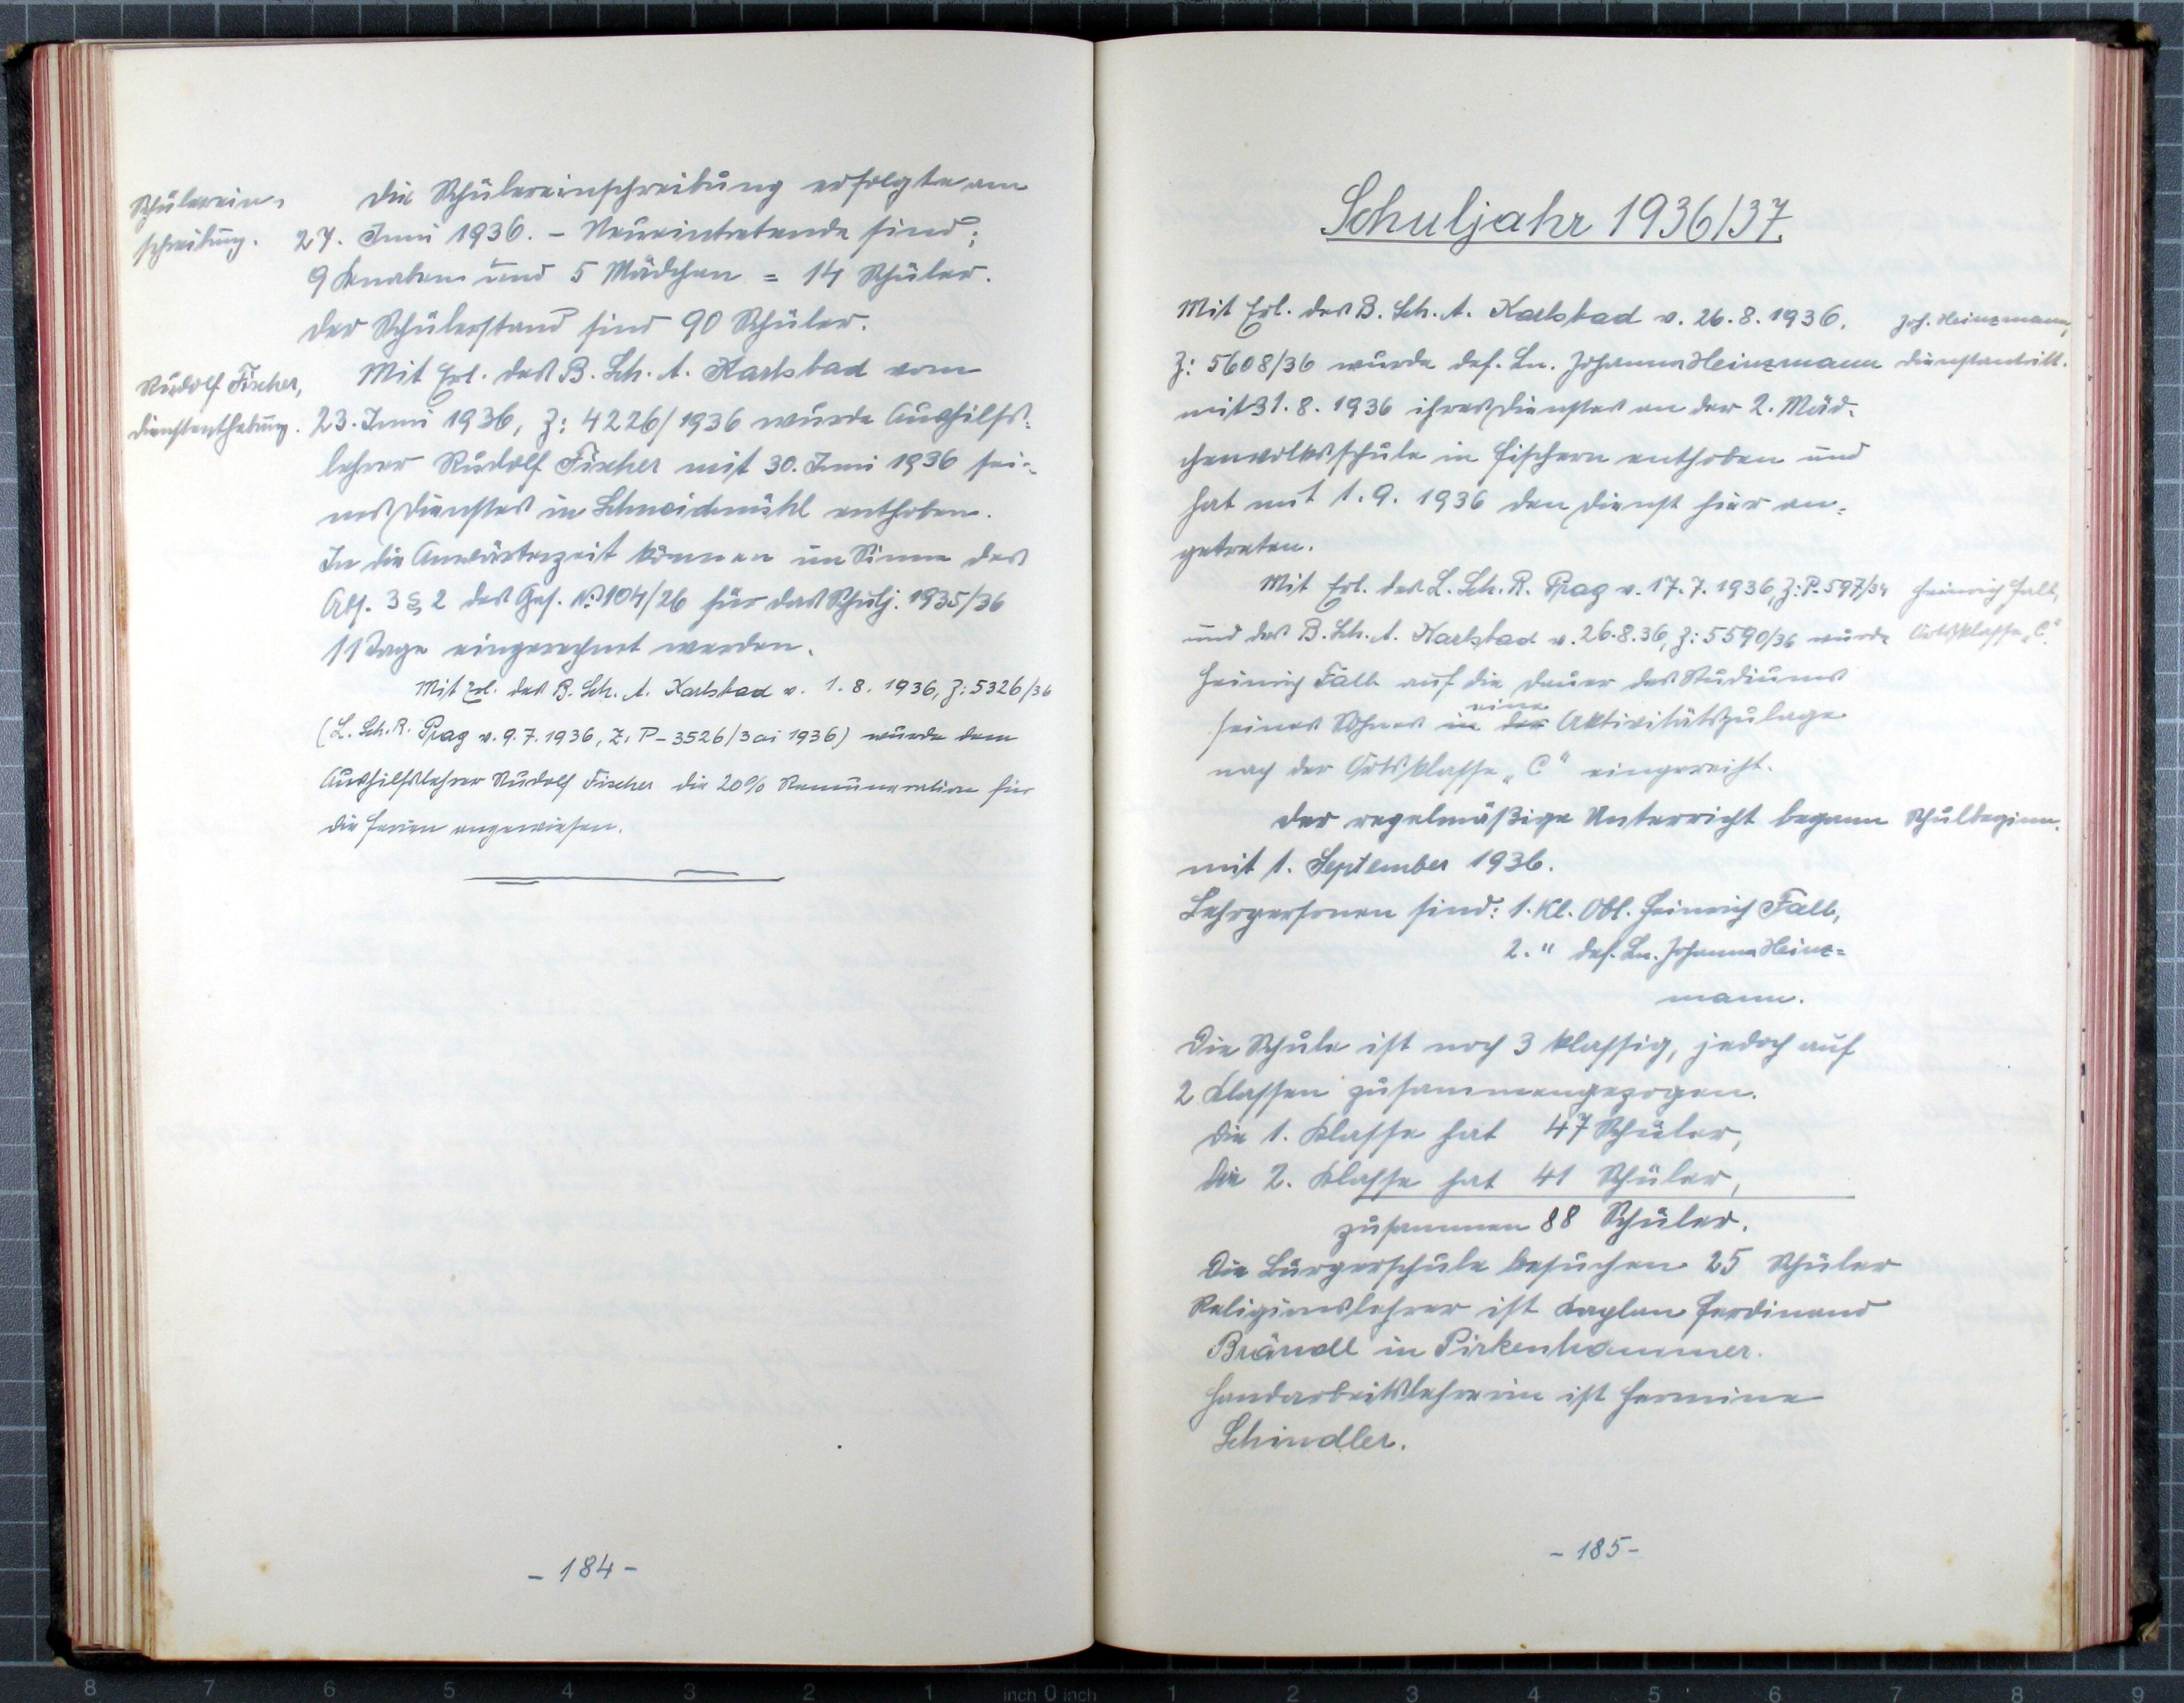 Schülerein-
schreibung.
Die Schülereinschreibung erfolgte am
27. Juni 1936. - Neueintretende sind:
9 Knaben und 5 Mädchen = 14 Schüler.
Der Schülerstand sind 90 Schüler.
Rudolf Fischer,
Dienstenthebung.
Mit Erl. des B. Sch. A. Karlsbad vom
23. Juni 1936, Z: 4226/1936 wurde Aushilfs-
lehrer Rudolf Fischer mit 30. Juni 1936 sei-
nes Dienstes in Schneidmühl enthoben.
In die Anwärterzeit können im Sinne des
Abs. 3 § 2 des Ges. No 104/26 für das Schulj. 1935/36
11 Tage eingerechnet werden.
Mit Erl. des B. Sch. A. Karlsbad v. 1. 8. 1936, Z: 5326/36
(L. Sch. R. Prag v. 9. 7. 1936, Z. P-3526/3 ai 1936) wurde dem
Aushilfslehrer Rudolf Fischer die 20% Remuneration für
die Ferien angewiesen.
- 184 -
Schuljahr 1936/37.
Mit Erl. des B. Sch. A. Karlsbad v. 26. 8. 1936.
Z: 5608/36 wurde def. Ln. Johanna Heinzmann
mit 31. 8. 1936 ihres Dienstes an der 2. Mäd-
chenvolksschule in Fischern enthoben und
hat mit 1. 9. 1936 den Dienst hier an-
getreten.
Joh. Heinzmann,
Dienstantritt.
Mit Erl. des L. Sch. R. Prag v. 17. 7. 1936, Z: P-597/34
und des B. Sch. A. Karlsbad v. 26. 8. 36, Z: 5590/36 wurde
Heinrich Falb auf die Dauer des Studiums
seines Sohnes in eine der Aktivitätszulage
nach der Ortsklasse „C“ eingereiht.
Heinrich Falb,
Ortsklasse „C“.
Der regelmäßige Unterricht begann
mit 1. September 1936.
Schulbeginn.
Lehrpersonen sind: 1. Kl. Obl. Heinrich Falb,
2. " def. Ln. Johanna Heinz-
mann.
Die Schule ist noch 3 klassig, jedoch auf
2 Klassen zusammengezogen.
Die 1. Klasse hat 47 Schüler,
die 2. Klasse hat 41 Schüler,
zusammen 88 Schüler.
Die Bürgerschule besuchen 25 Schüler
Religionslehrer ist Kaplan Ferdinand
Brändl in Pirkenhammer.
Handarbeitslehrerin ist Hermine
Schindler.
- 185 -
8 7 6 5 4 3 2 1 inch 0 inch 1 2 3 4 5 6 7 8 9